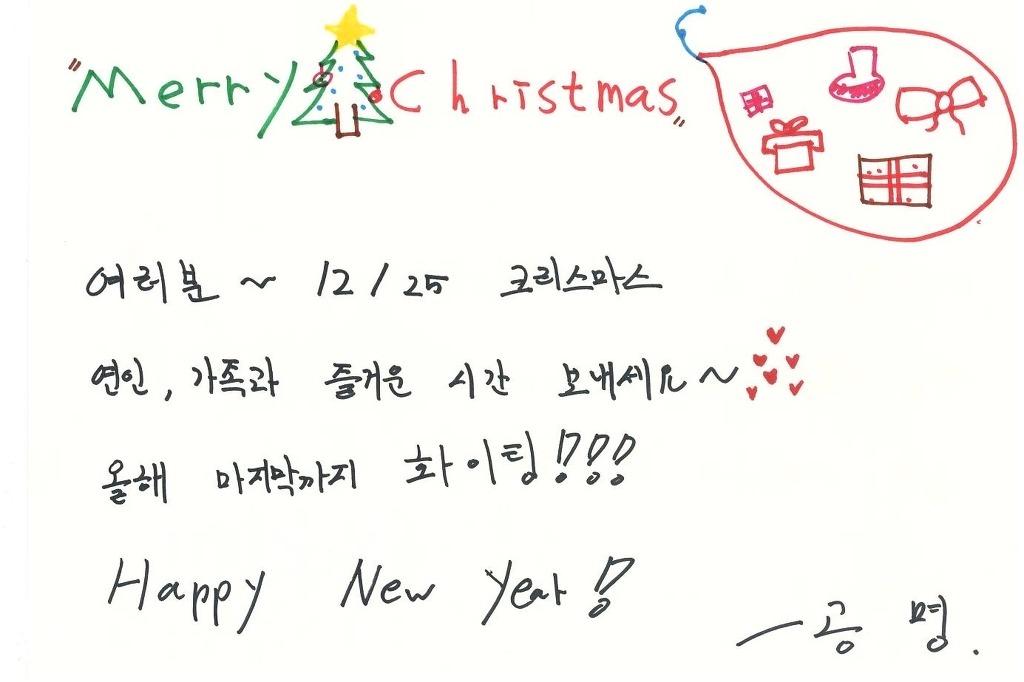 "Merry Christmas"
여러분 ~ 12/25 크리스마스
연인, 가족과 즐거운 시간 보내세요~
올해 마지막까지 화이팅!!!
Happy New Year!
- 공 명.